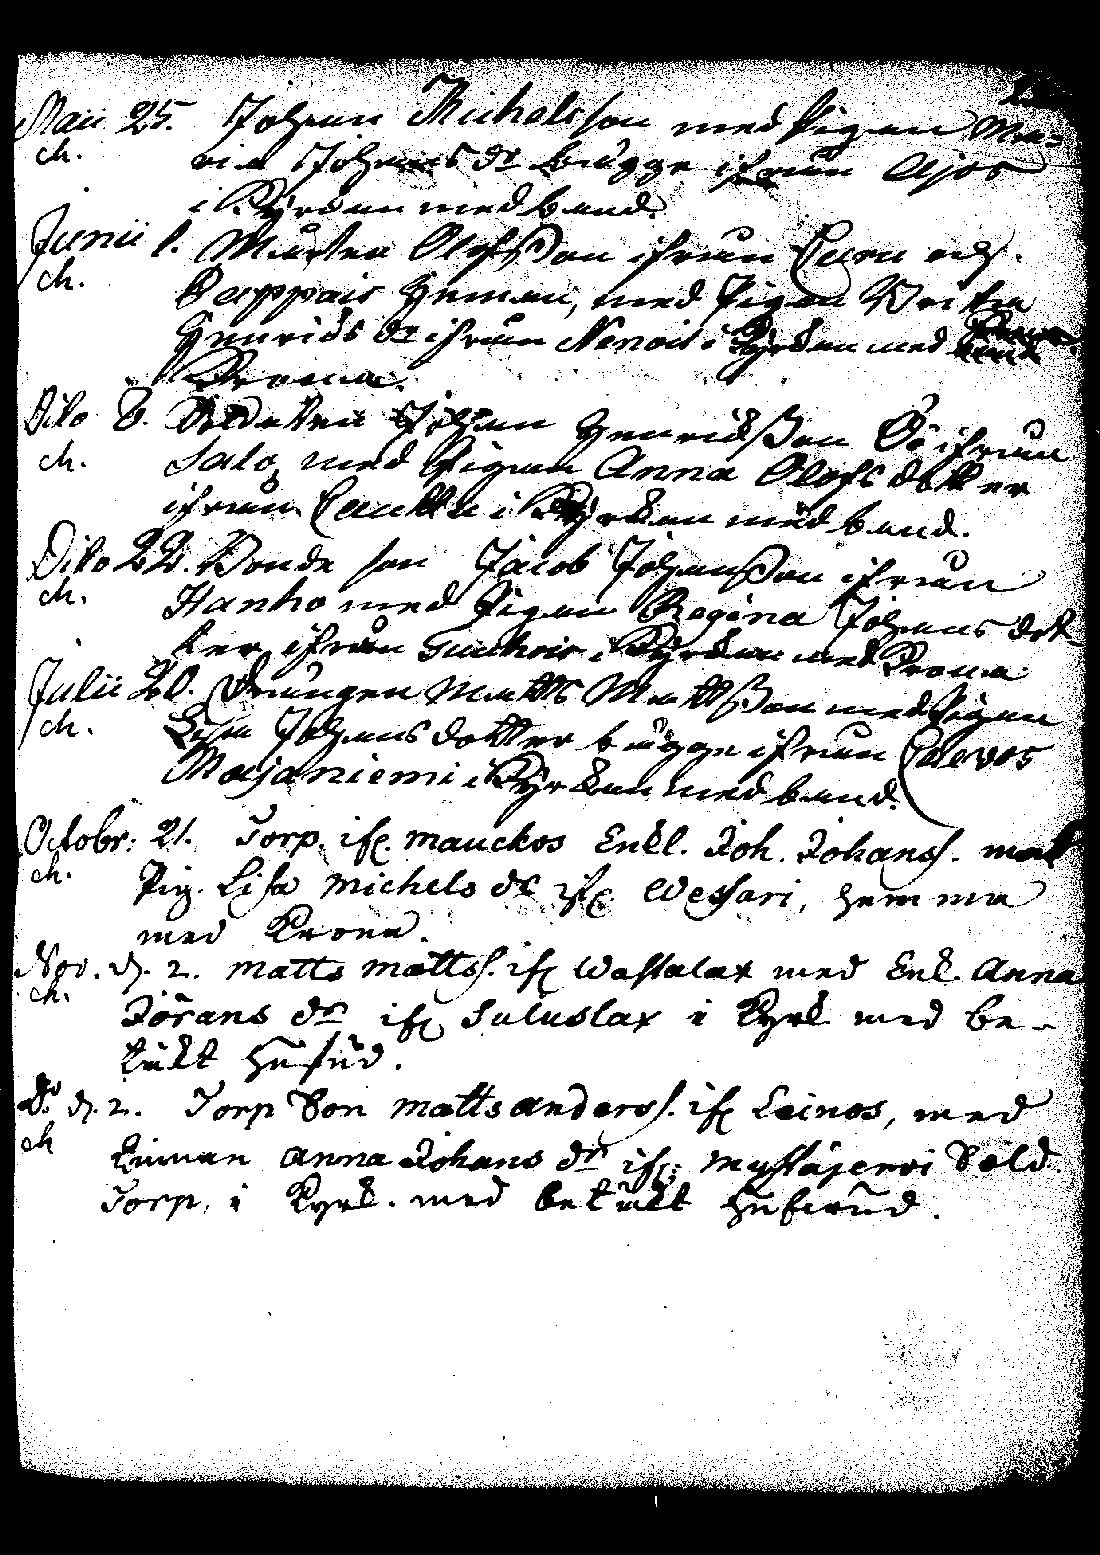 Maii 25. Johan Michelsson med Pigan Ma-
ch. ria Johans dr bägge ifrån Ajos
i Kyrckan med band.
Junii 1. Mårten Olofsson ifrån
ch. Pappais hemman, med Pigan
Henrics dr ifrån i Kyrckan med
Krona.
Dito 8. Johan Henricsson ifrån
ch. Salo, med Pigan Anna Olofs dotter
ifrån Lauckka i Kyrckan med band.
Dito 22. Bonde son Jacob Johansson ifrån
ch. Hanho med Pigan Regina Johans dot
ter ifrån i Kyrckan med Krona
Julii 20. Drängen Matts Mattsson med Pigan
ch. Lisa Johans dotter bägge ifrån
Majaniemi i Kyrckan med band.
Octobr: 21. Torp. ifr. mauckos Enkl. Joh. Johanss. med
ch. Pig. Lisa Michels dr ifr Wessari, hemma
med Krona.
Nov. d. 2. Matts Mattss. ifr Wastalax med Enk. Anna
ch. Jörans dr ifr Suluslax i Kyrk. med be-
täckt hufud.
Do d. 2. Torp Son Matts Anderss. ifr Leinos, med
ch Anna Johans dr ifr: Mustajervi Sold.
Torp, i Kyrk. med betäckt hufwud.